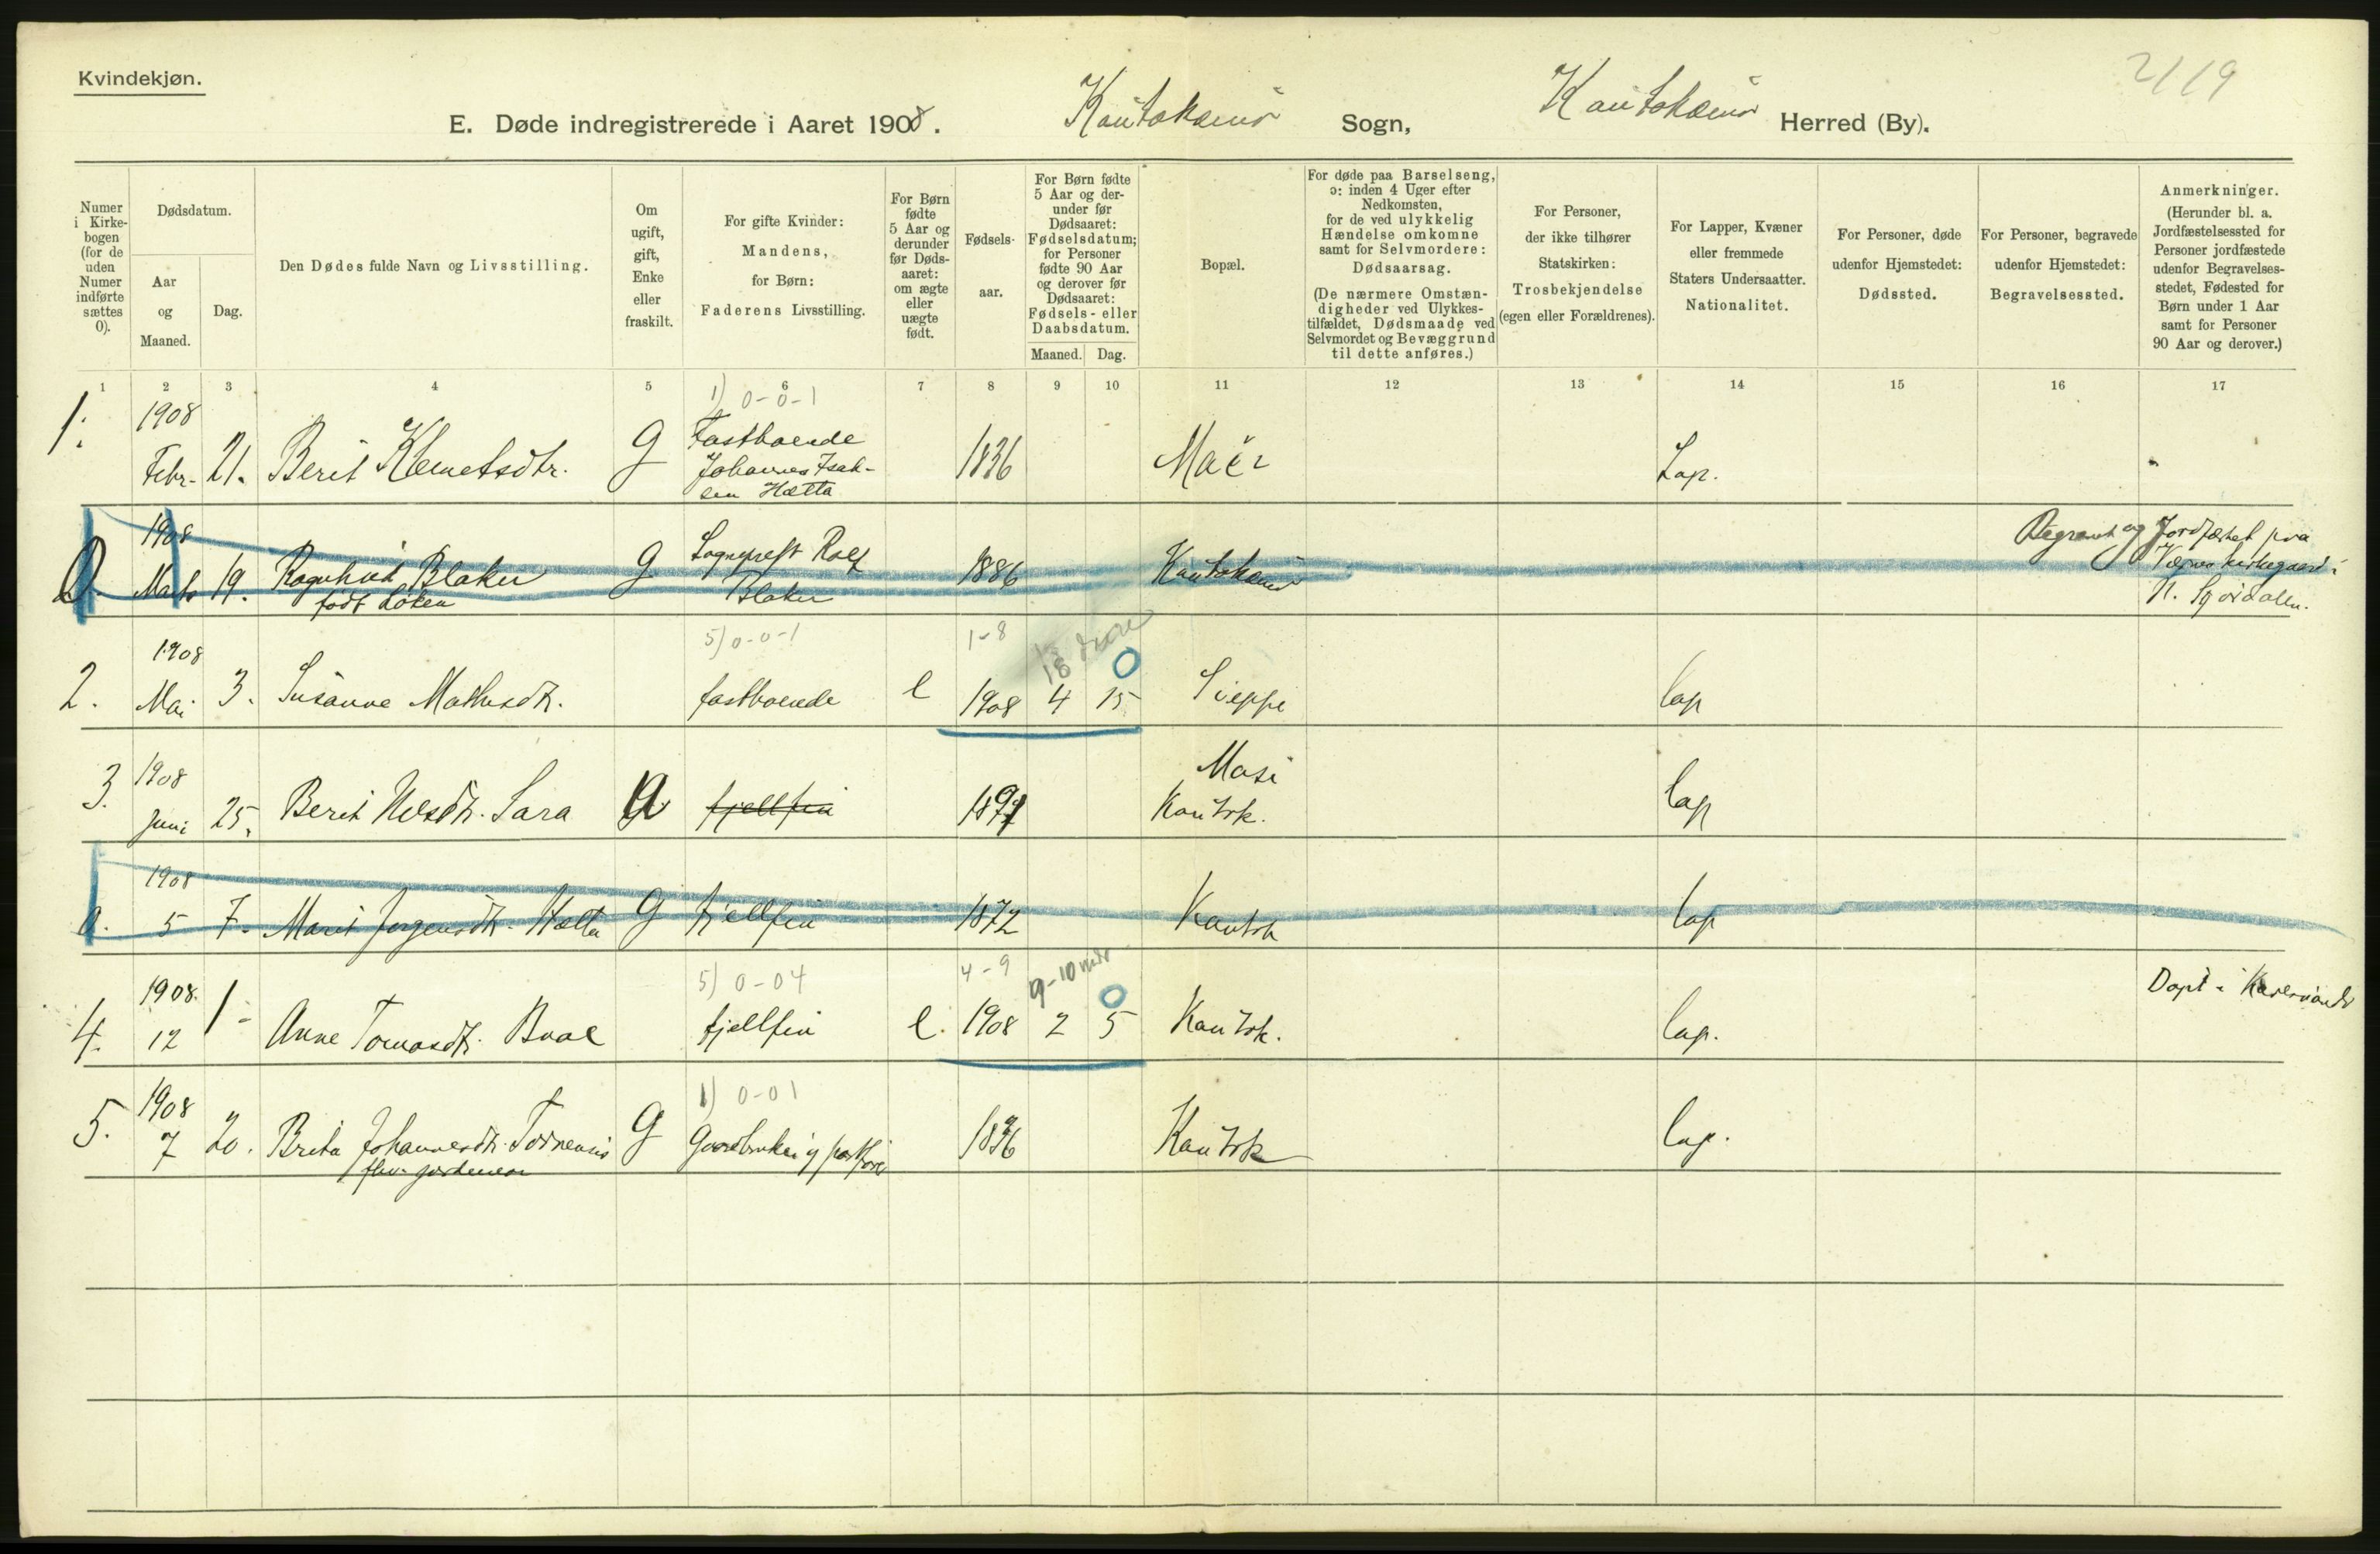 Kvindekjøn.
2119
E. Døde indregistrerede i Aaret 1908. Kautokeino Sogn, Kautokeino Herred (By).
Numer i Kirke-bogen (for de uden Numer indførte sættes 0).
Dødsdatum.
Aar og Maaned.
Dag.
Den Dødes fulde Navn og Livsstilling.
Om ugift, gift, Enke eller fraskilt.
For gifte Kvinder: Mandens, for Børn: Faderens Livsstilling.
For Børn fødte 5 Aar og derunder før Døds-aaret: om ægte eller uægte født.
Fødsels-aar.
For Børn fødte 5 Aar og der-under før Dødsaaret: Fødselsdatum; for Personer fødte 90 Aar og derover før Dødsaaret: Fødsels- eller Daabsdatum.
Maaned. Dag.
Bopæl.
For døde paa Barselseng, ɔ: inden 4 Uger efter Nedkomsten, for de ved ulykkelig Hændelse omkomne samt for Selvmordere: Dødsaarsag.
(De nærmere Omstæn-digheder ved Ulykkes-tilfældet, Dødsmaade ved Selvmordet og Bevæggrund til dette anføres.)
For Personer, der ikke tilhører Statskirken: Trosbekjendelse (egen eller Forældrenes).
For Lapper, Kvæner eller fremmede Staters Undersaatter. Nationalitet.
For Personer, døde udenfor Hjemstedet: Dødssted.
For Personer, begravede udenfor Hjemstedet: Begravelsessted.
Anmerkninger.
(Herunder bl. a. Jordfæstelsessted for Personer jordfæstede udenfor Begravelses-stedet, Fødested for Børn under 1 Aar samt for Personer 90 Aar og derover.)
1 2 3 4 5 6 7 8 9 10 11 12 13 14 15 16 17
1) 0-0-1
1. 1908 Febr. 21. Berit Klemetsdtr. G Fastboende
Johannes Isak-
sen Hætta 1836 Lap.
0. 1908 Marts 19. Ragnhild Blaker
født Løken G Sogneprest Rolf
Blaker 1886 Kautokeino Begravet og Jordfæstet paa
Værnes kirkegaard i
N. Stjørdalen.
5) 0-0-1 1-8 18
2. 1908 Mai 3. Susanne Mathisdtr. fastboende e 1908 4 15 0 Sieppe lap
3. 1908 Juni 25. Berit Nilsdtr. Sara fjellfin Masi
Kautok. lap
0. 1908 5 7. Marit Jørgensdtr. Hætta G fjellfin 1872 Kautok lap
5) 0-04 4-9 9-10 mdr
4. 1908. 12 1 Anne Tomasdtr. Baal fjellfin e. 1908 2 5 0 Kautok. lap. Døpt i
1) 0-01
5. 1908 7 20. Brita Johannesdtr. Tornensis
fhv. jordemor G Gaardbruker og postfører 1836 Kautok lap.